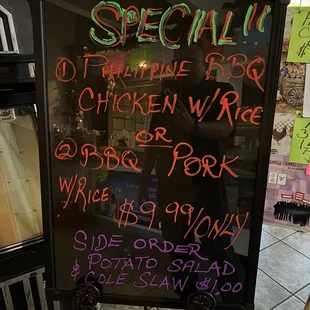 SPECIAL!!
① PHILIPPINE BBQ
CHICKEN W/RICE
OR
② BBQ PORK
W/RICE
$9.99/ONLY
SIDE ORDER
POTATO SALAD
& COLE SLAW $1.00